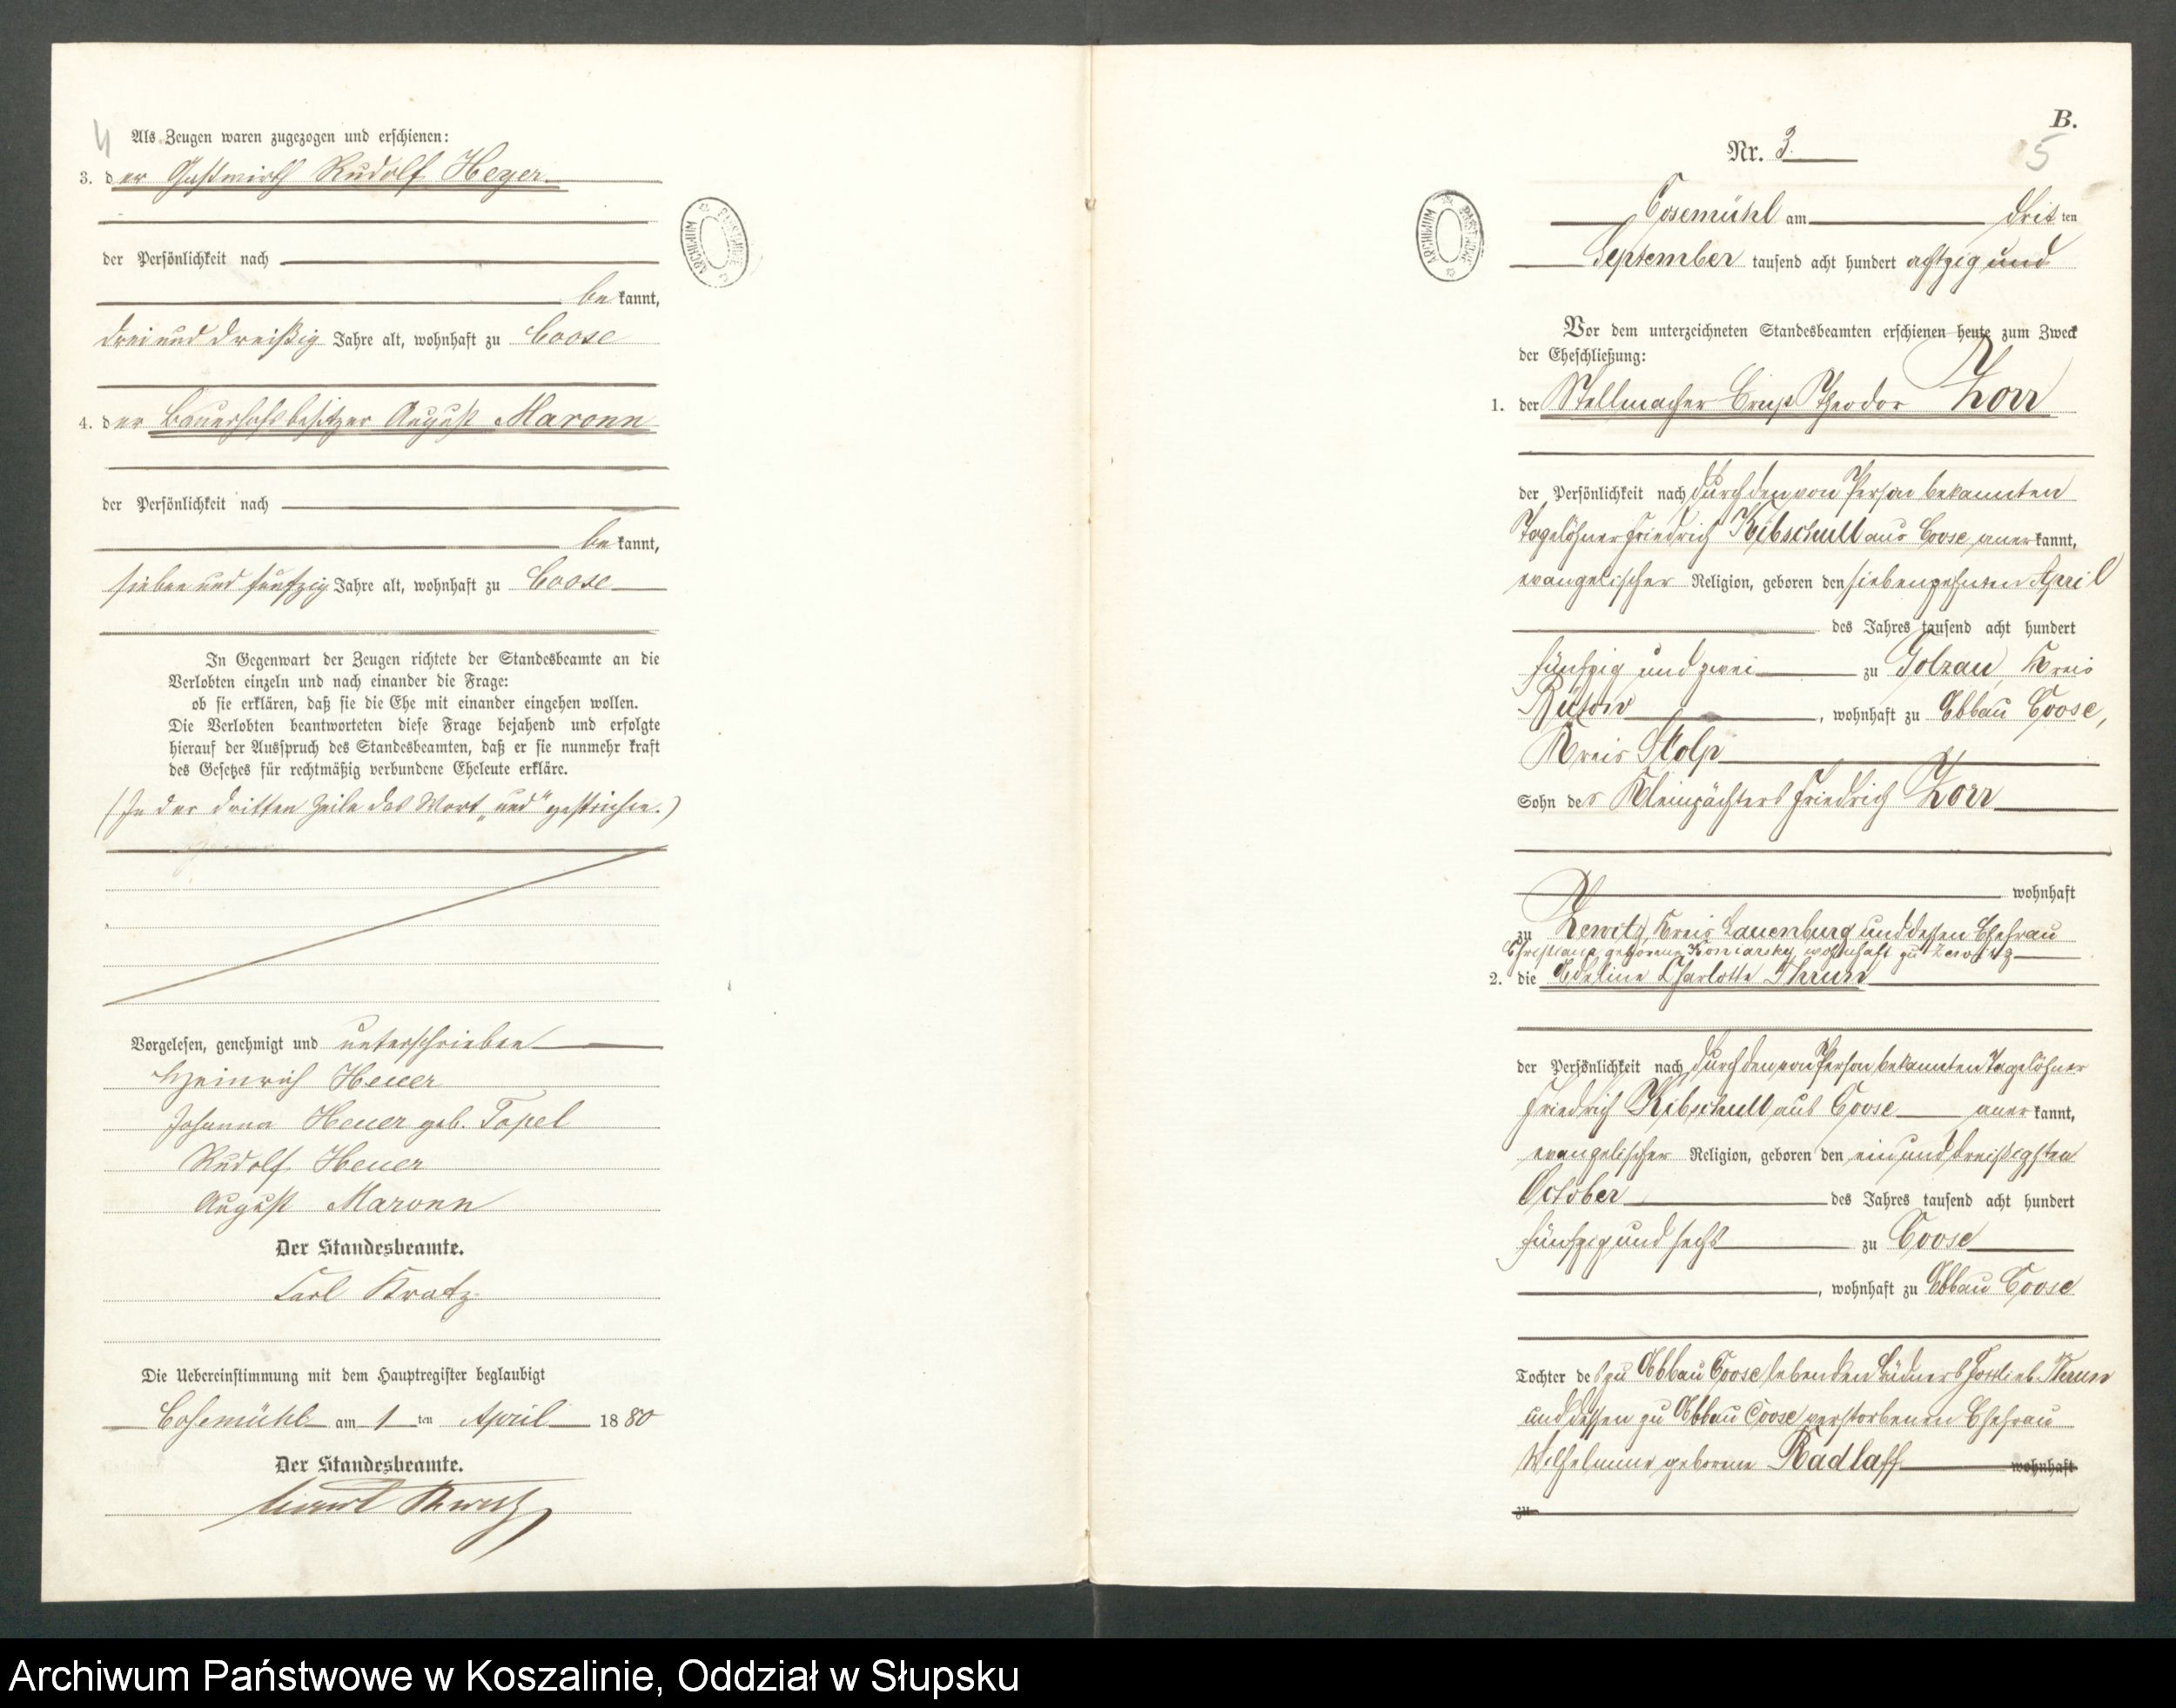 4
Als Zeugen waren zugezogen und erschienen:
3. der Gastwirth Rudolf Heyer.
der Persönlichkeit nach
bekannt,
drei und dreißig Jahre alt, wohnhaft zu Coose
4. der Bauerhofsbesitzer August Maronn
der Persönlichkeit nach
bekannt,
sieben und fünfzig Jahre alt, wohnhaft zu Coose
In Gegenwart der Zeugen richtete der Standesbeamte an die
Verlobten einzeln und nach einander die Frage:
ob sie erklären, daß sie die Ehe mit einander eingehen wollen.
Die Verlobten beantworteten diese Frage bejahend und erfolgte
hierauf der Ausspruch des Standesbeamten, daß er sie nunmehr kraft
des Gesetzes für rechtmäßig verbundene Eheleute erkläre.
(In der dritten Zeile das Wort „und" gestrichen.)
Vorgelesen, genehmigt und unterschrieben
Heinrich Heuer
Johanna Heuer geb. Topel
Rudolf Heuer
August Maronn
Der Standesbeamte.
Carl Kratz
Die Uebereinstimmung mit dem Hauptregister beglaubigt
Cosemühl am 1 ten April 1880
Der Standesbeamte.
ARCHIWUM PAŃSTWOWE
B.
5
Nr. 3.
Cosemühl am dritten
September tausend acht hundert achtzig und
Vor dem unterzeichneten Standesbeamten erschienen heute zum Zweck
der Eheschließung:
1. der Stellmacher Ernst Theodor Zorr
der Persönlichkeit nach durch den von Person bekannten
Tagelöhner Friedrich Kibschull aus Coose anerkannt,
evangelischer Religion, geboren den siebenzehnten April
des Jahres tausend acht hundert
fünfzig und zwei zu Golzau, Kreis
Bütow, wohnhaft zu Abbau Coose,
Kreis Stolp
Sohn des Kleinpächters Friedrich Zorr
wohnhaft
zu Zewitz, Kreis Lauenburg und dessen Ehefrau
Christiane geborene Koniarsky wohnhaft zu Zewitz
2. die Adeline Charlotte Thrun
der Persönlichkeit nach durch den von Person bekannten Tagelöhner
Friedrich Kibschull aus Coose anerkannt,
evangelischer Religion, geboren den ein und dreißigsten
October des Jahres tausend acht hundert
fünfzig und sechs zu Coose
, wohnhaft zu Abbau Coose
Tochter des zu Abbau Coose lebenden Büdners Gottlieb Thrun
und dessen zu Abbau Coose verstorbenen Ehefrau
Wilhelmine geborene Radlaff wohnhaft
zu
ARCHIWUM PAŃSTWOWE
Archiwum Państwowe w Koszalinie, Oddział w Słupsku